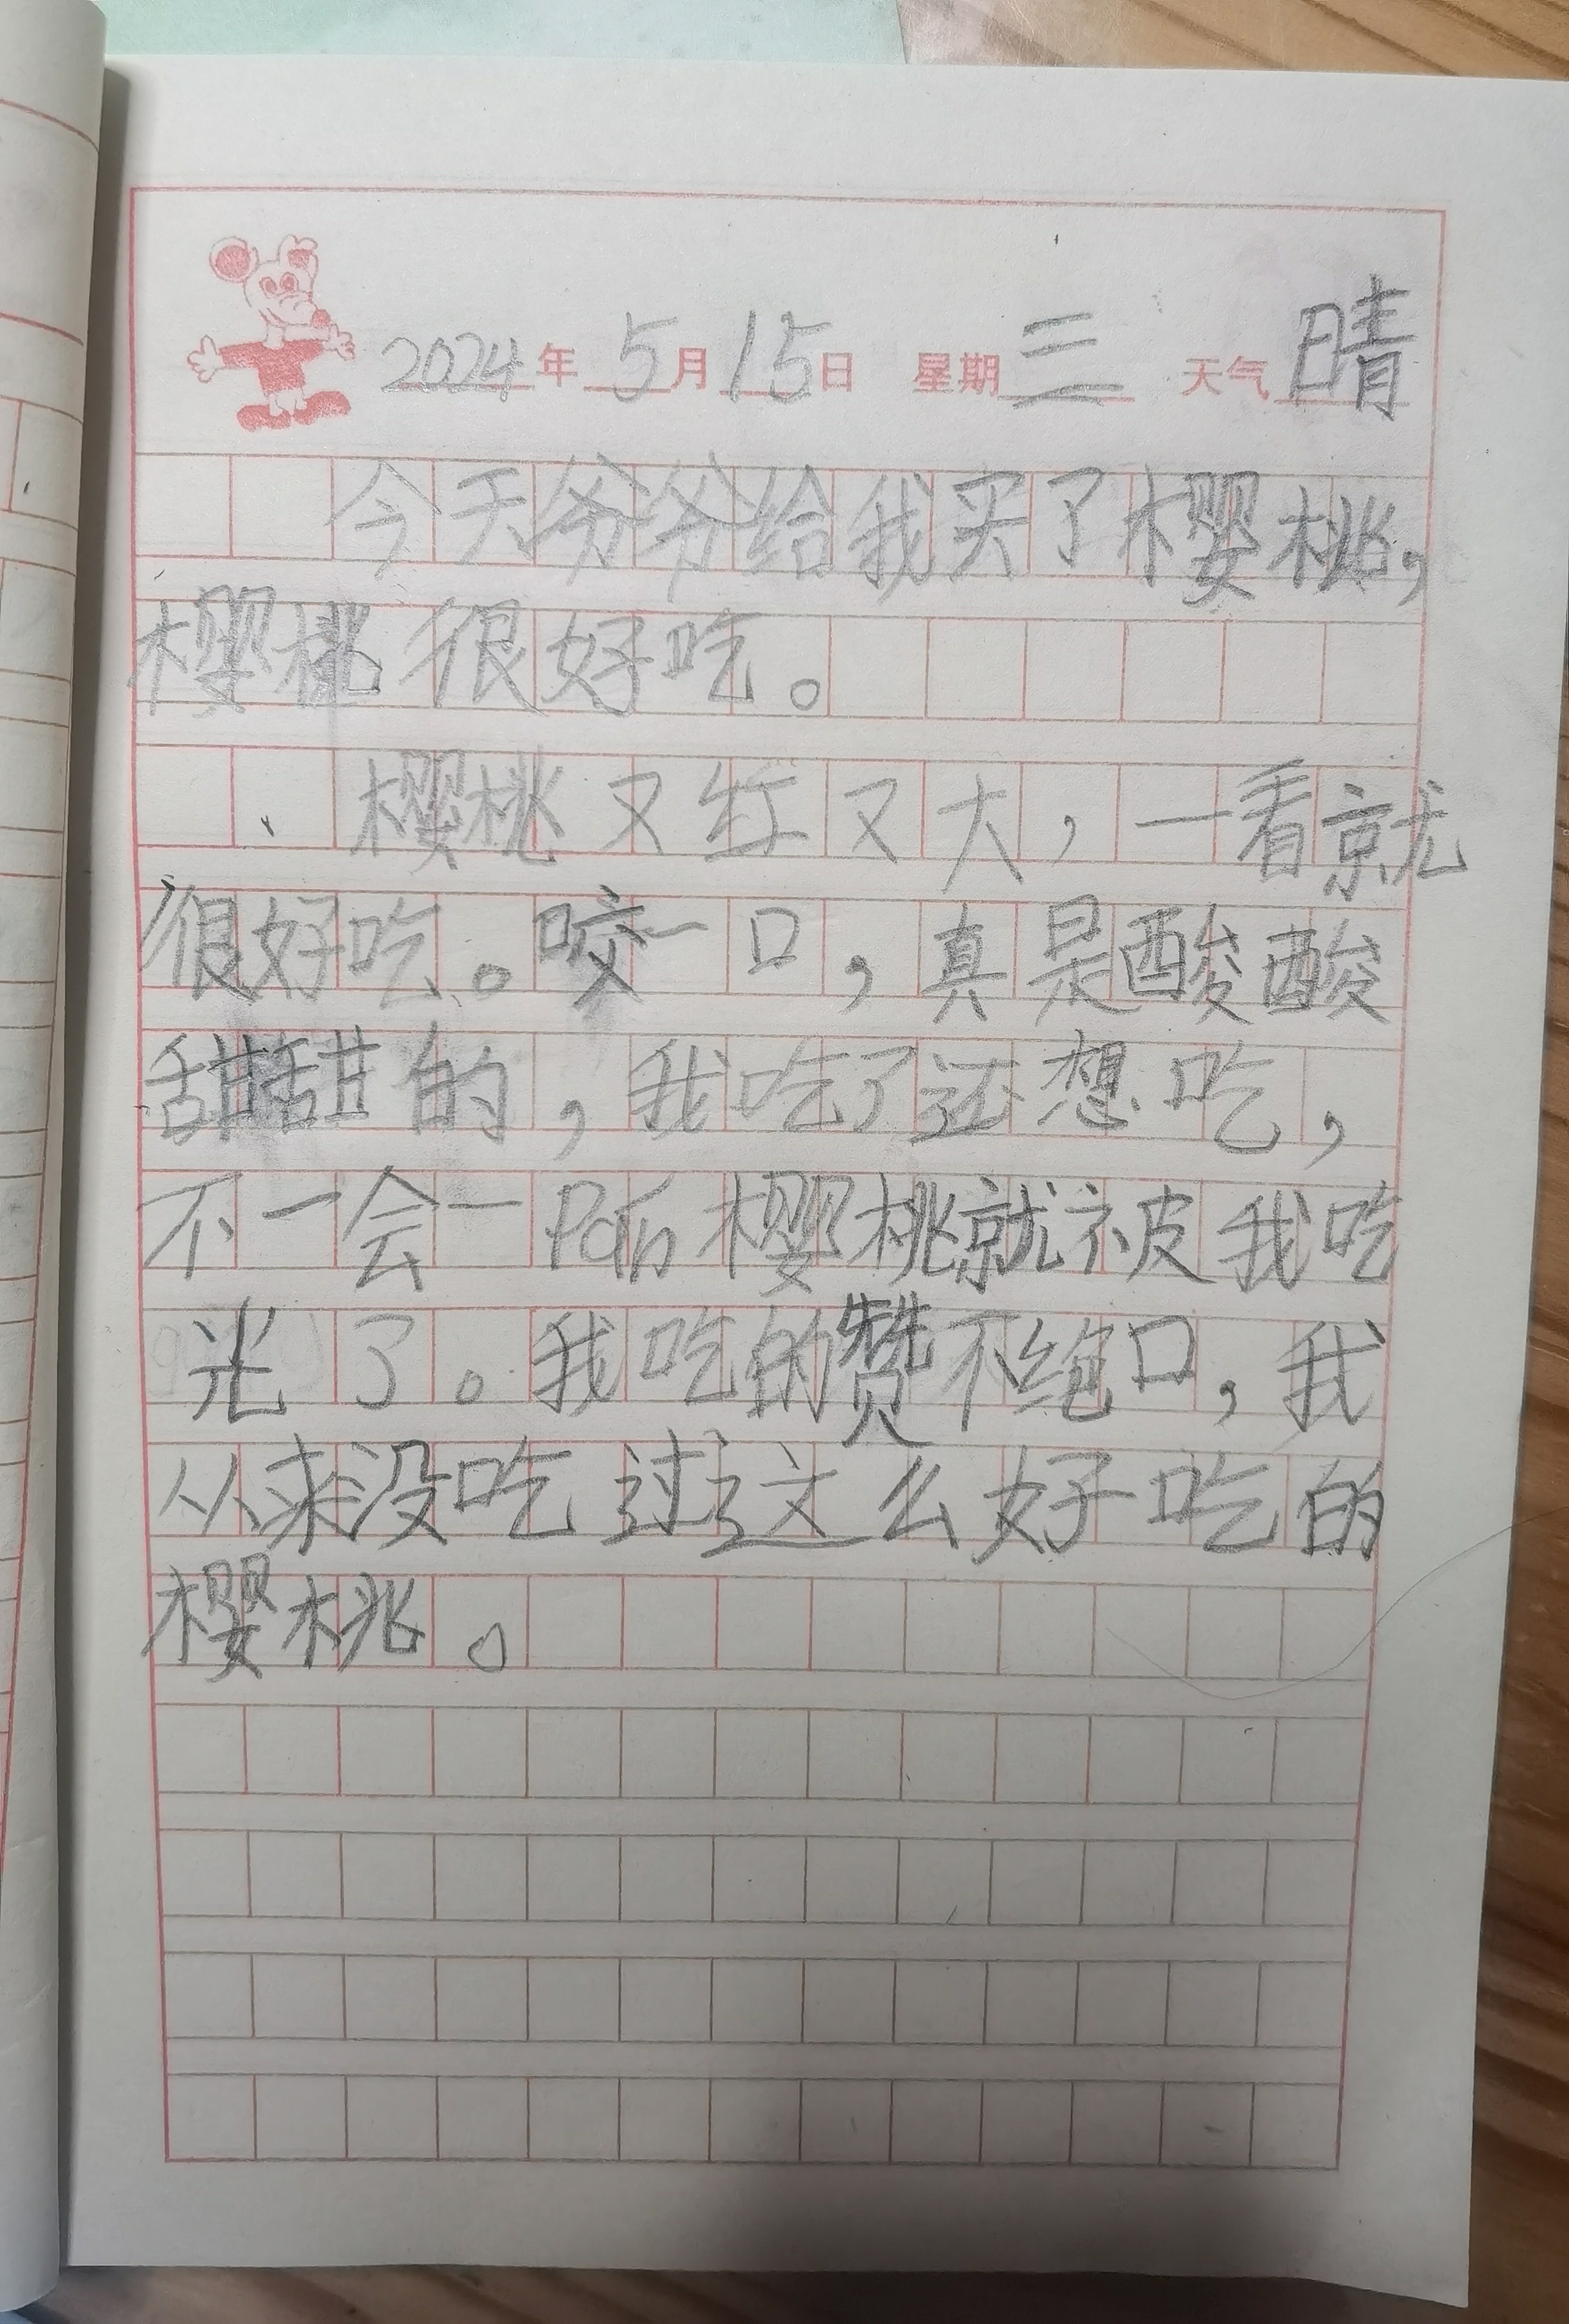 2024年5月15日 星期三 天气晴
今天爷爷给我买了樱桃，
樱桃很好吃。
樱桃又红又大，一看就
很好吃。咬一口，真是酸酸
甜甜的，我吃了还想吃，
不一会一Pán樱桃就被我吃
光了。我吃的赞不绝口，我
从来没吃过这么好吃的
樱桃。